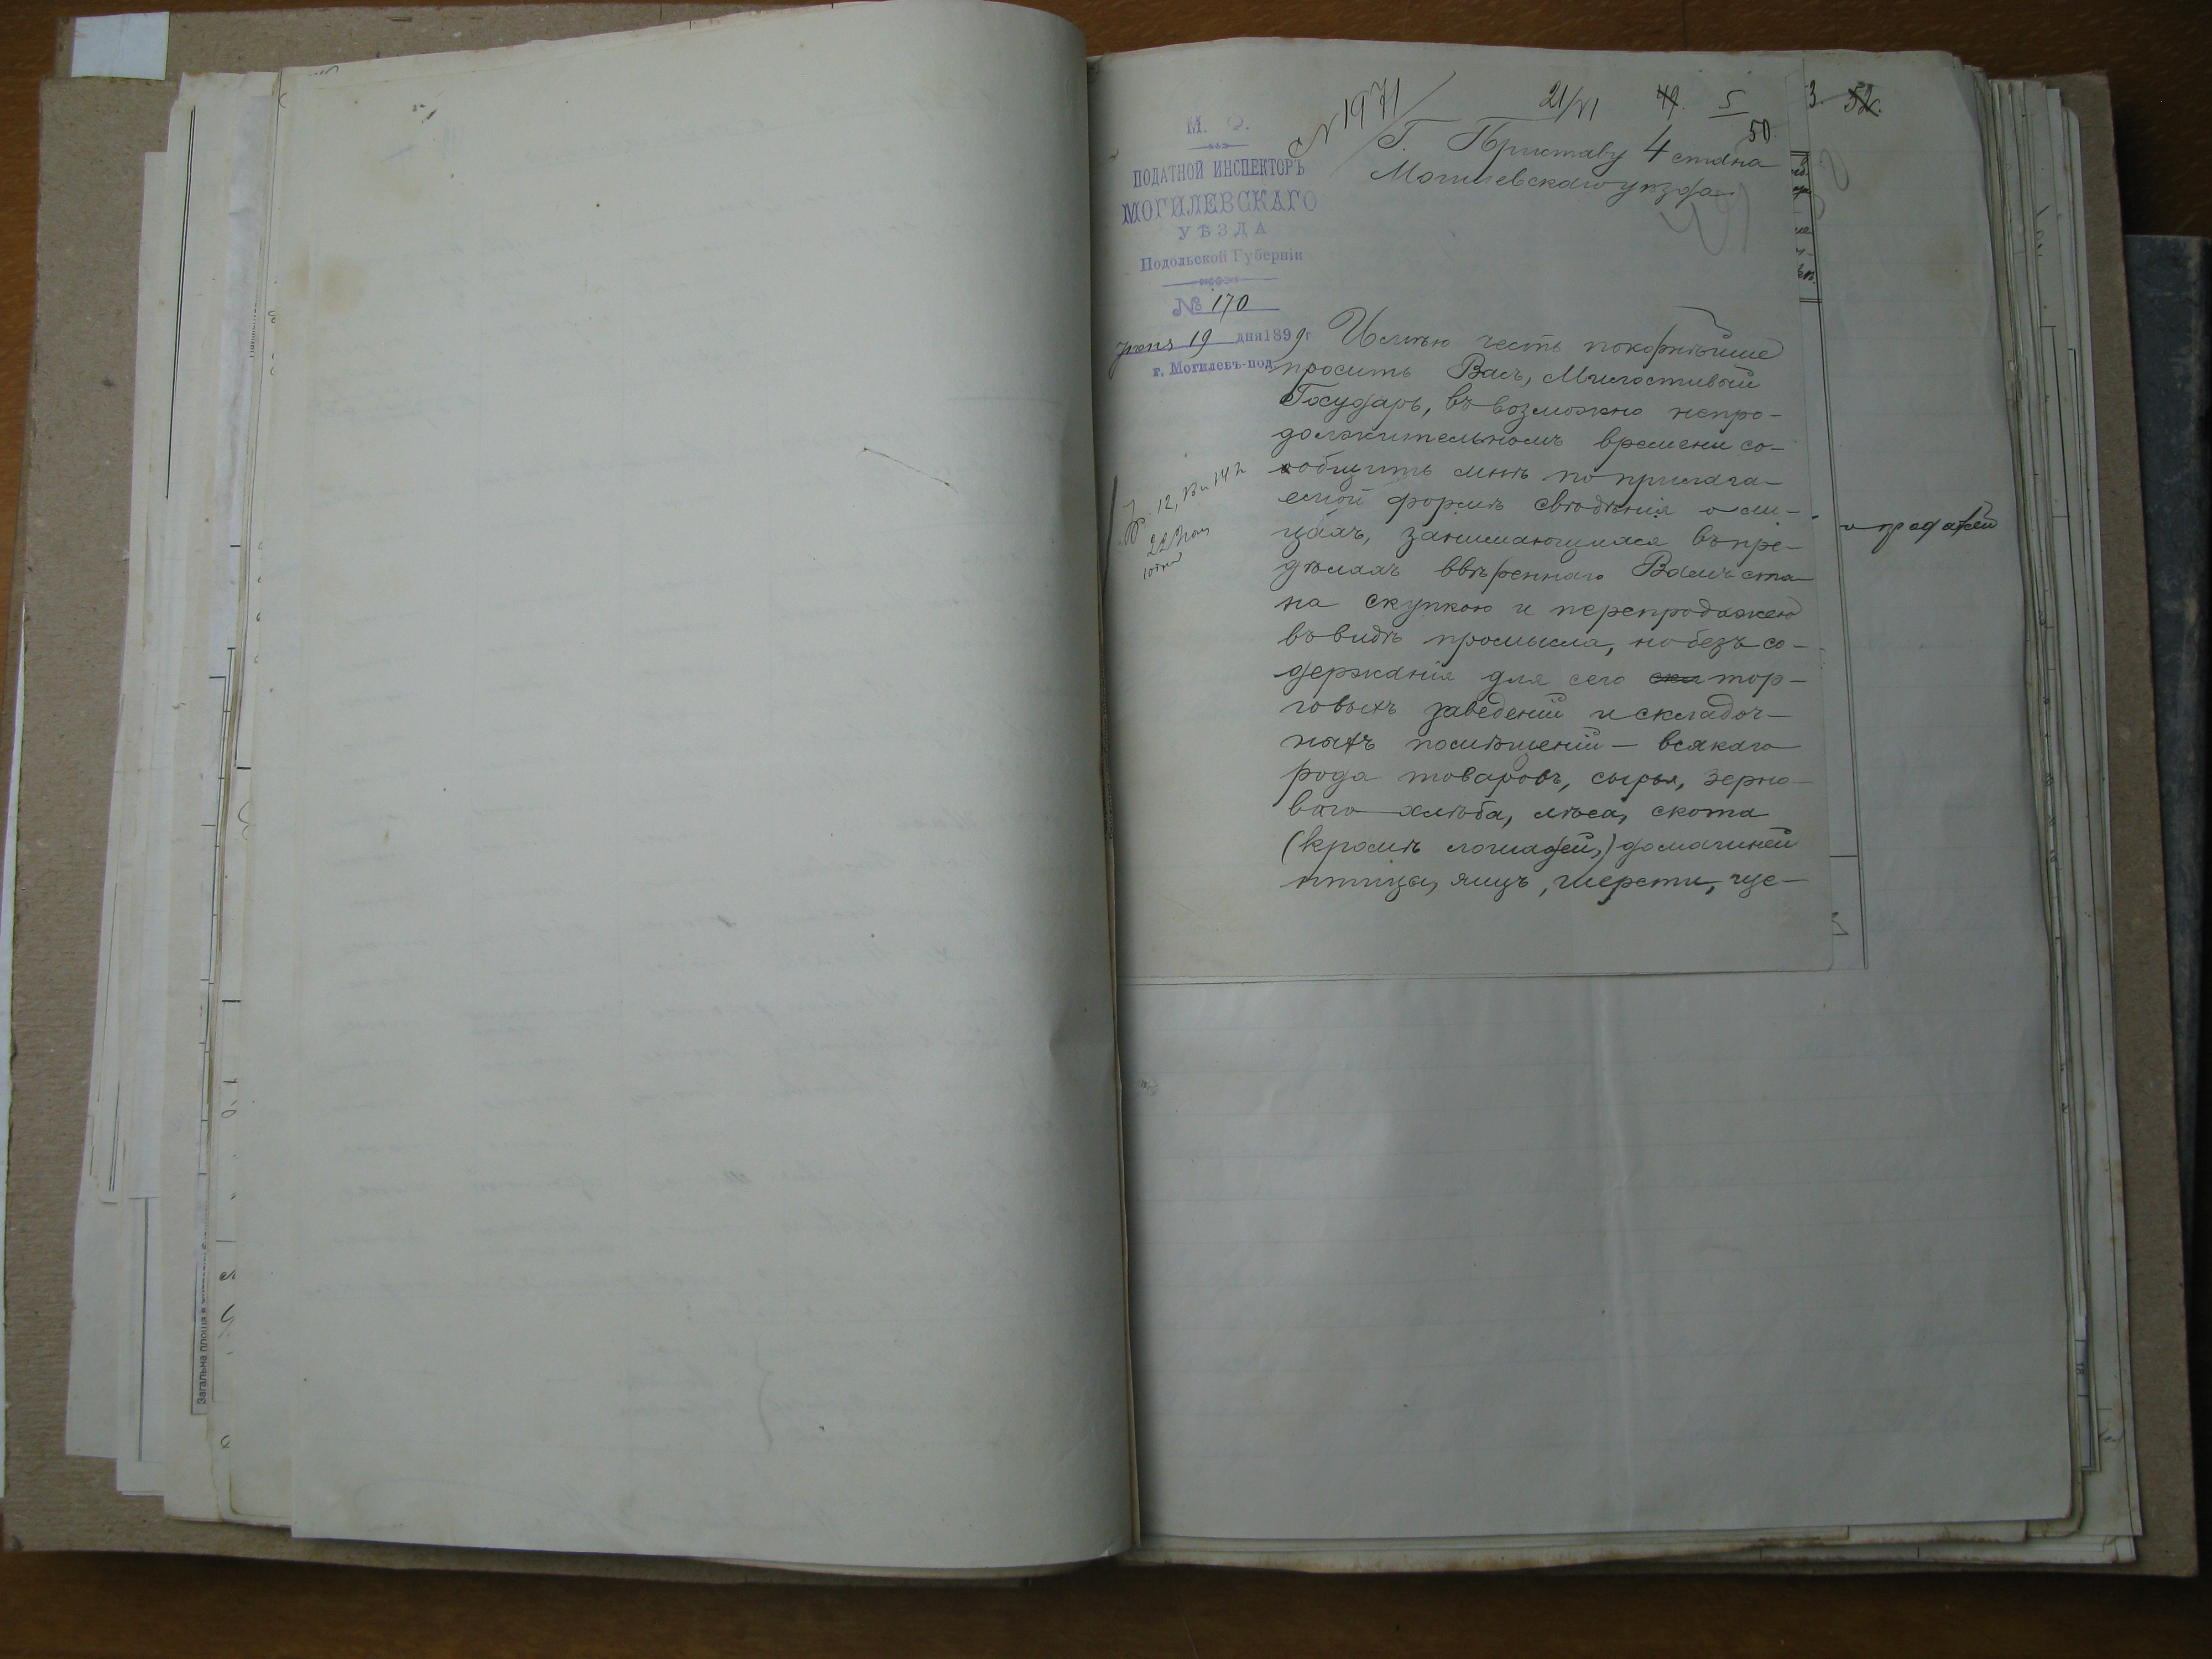 № 1971
21/VI 49. 5 3. 52.
50
М. Ф.
ПОДАТНОЙ ИНСПЕКТОРЪ
МОГИЛЕВСКАГО
УѢЗДА
Подольской Губерніи
№ 170
Іюня 19 дня 1899 г
г. Могилевъ-под.
Г. Приставу 4 стана
Могилевскаго уѣзда
Имѣю честь покорнѣйше
просить Васъ, Милостивый
Государь, въ возможно непро-
должительномъ времени со-
общить мнѣ по прилага-
емой формѣ свѣдѣнія о ли-
цахъ, занимающихся въ пре-
дѣлахъ ввѣреннаго Вамъ ста-
на скупкою и перепродажею
въ видѣ промысла, но безъ со-
держанія для сего скл тор-
говыхъ заведеній и складоч-
ныхъ помѣщеній — всякаго
рода товаровъ, сырья, зерно-
ваго хлѣба, лѣса, скота
(кромѣ лошадей,) домашней
птицы, яицъ, шерсти, ще-
Загальна площа в